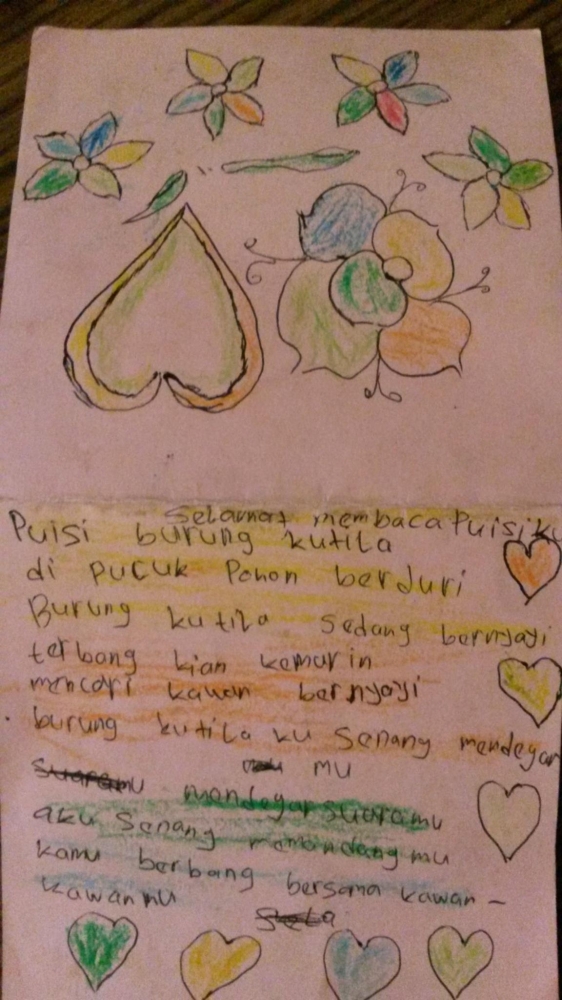 Selamat membaca Puisiku
Puisi burung kutila
di pucuk Pohon berduri
Burung kutila sedang bernyayi
terbang kian kemarin
mencari kawan bernyayi
burung kutila ku senang mendegar
mu
mendegar suaramu
aku senang memandang mu
kamu berbang bersama kawan -
kawanmu